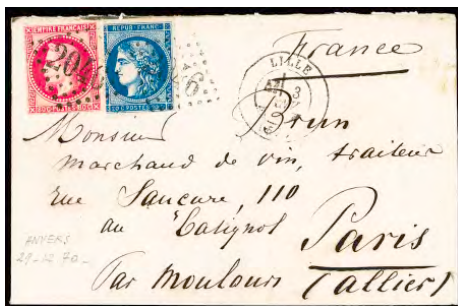 EMPIRE FRANÇAIS
REPUB. FRANC.
2046
46
France
LILLE
3
Monsieur Brun
marchand de vin, traiteur
rue Saucure, 110
au Batignol
Paris
ANVERS
29-12 70-
Par Moulons (allier)